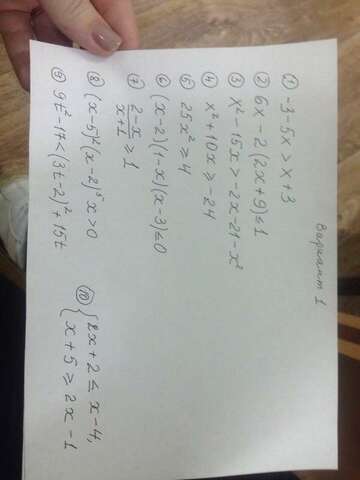 Вариант 1
① -3-5x > x+3
② 6x-2(2x+9)≤1
③ x²-15x>-2x-21-x²
④ x²+10x≥-24
⑤ 25x²≥4
⑥ (x-2)(1-x)(x-3)≤0
⑦ (2-x)/(x+1) ≥1
⑧ (x-5)²(x-2)⁵x>0
⑨ 9t²-17<(3t-2)²+15t
⑩ { 2x+2≤x-4,
x+5≥2x-1